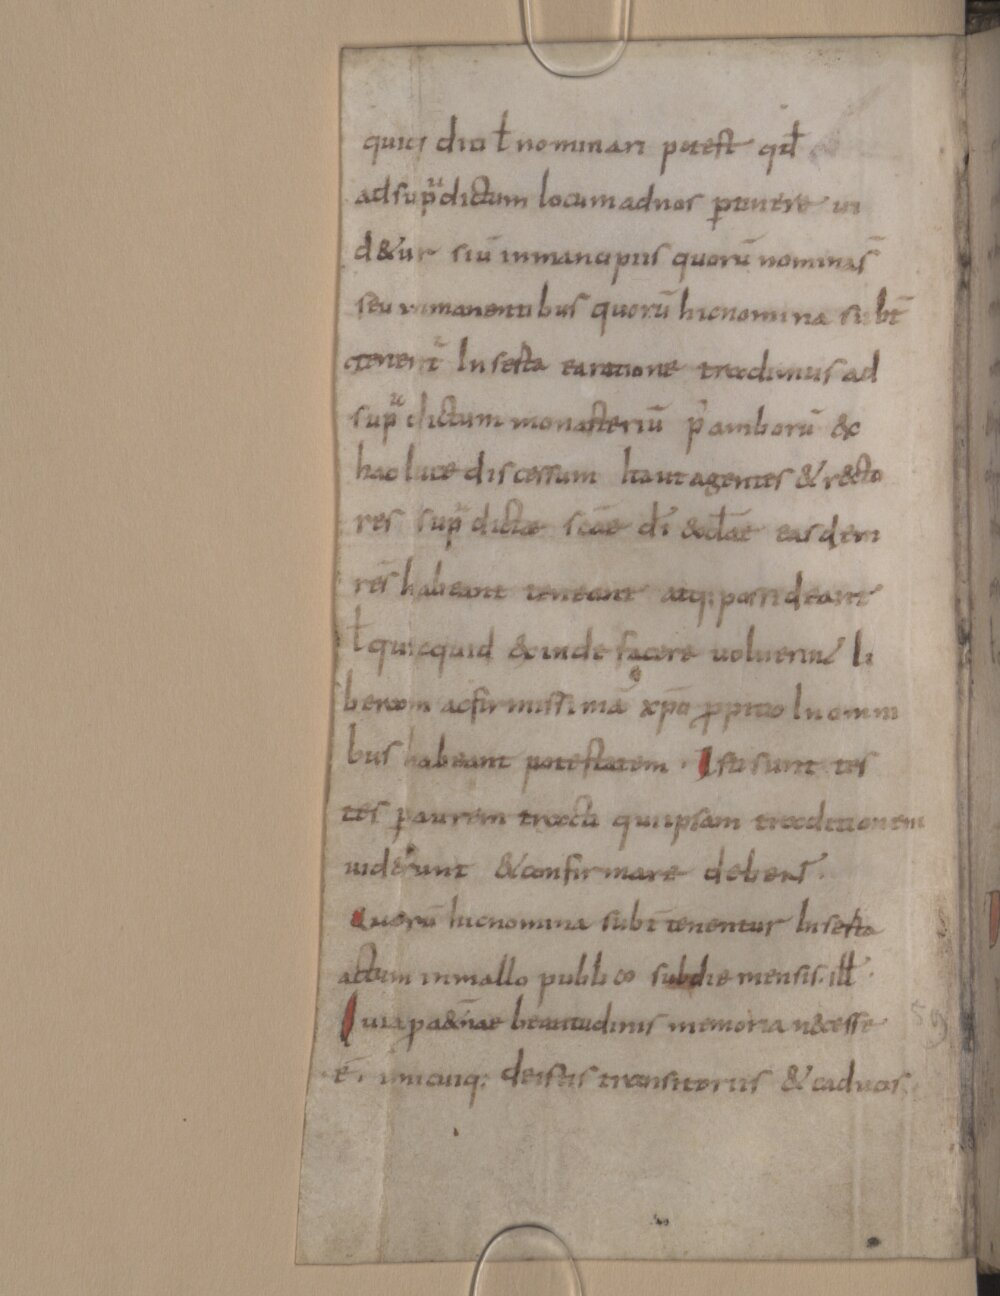 quiq; dici ł nominari potest qđ
ad sup̄dictum locum ad nos ꝑtinere ui
d&ur siū in mancipiis quorū nomina s̄
seu manentibus quorū hic nomina subt̄
tenent̄ In sesta ea ratione tradimus ad
sup̄dictum monasteriū p̄ amborū &
hac luce discessum ha ut agentes & recto
res sup̄dictae sc̄ae dī &cłae easdem
res habeant teneant atq; possideant
ł quicquid &inde facere uoluerint li
beram ac firmissimā xp̄o ꝓpitio In omni
bus habeant potestatem . Isti sunt tes
tes ꝑ aurem tracti qui ipsam traditionem
uiderunt & confirmare debent .
Quorū hic nomina subt̄ tenentur In sesta
actum in mallo publico sub die mensis . ill .
Quia ꝑa&̄nae beatitudinis memoria necesse
ē . unicuiq; de istis transitoriis & caducis
59